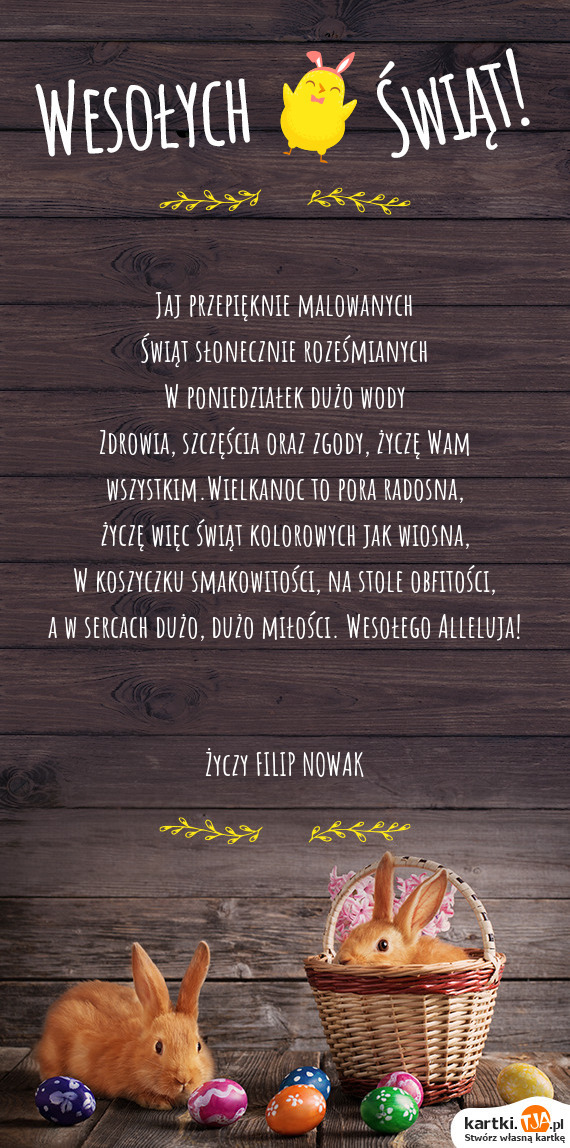 Wesołych Świąt!
Jaj przepięknie malowanych
Świąt słonecznie roześmianych
W poniedziałek dużo wody
Zdrowia, szczęścia oraz zgody, życzę Wam
wszystkim.Wielkanoc to pora radosna,
życzę więc świąt kolorowych jak wiosna,
W koszyczku smakowitości, na stole obfitości,
a w sercach dużo, dużo miłości. Wesołego Alleluja!
Życzy FILIP NOWAK
kartki.TJA.pl
Stwórz własną kartkę